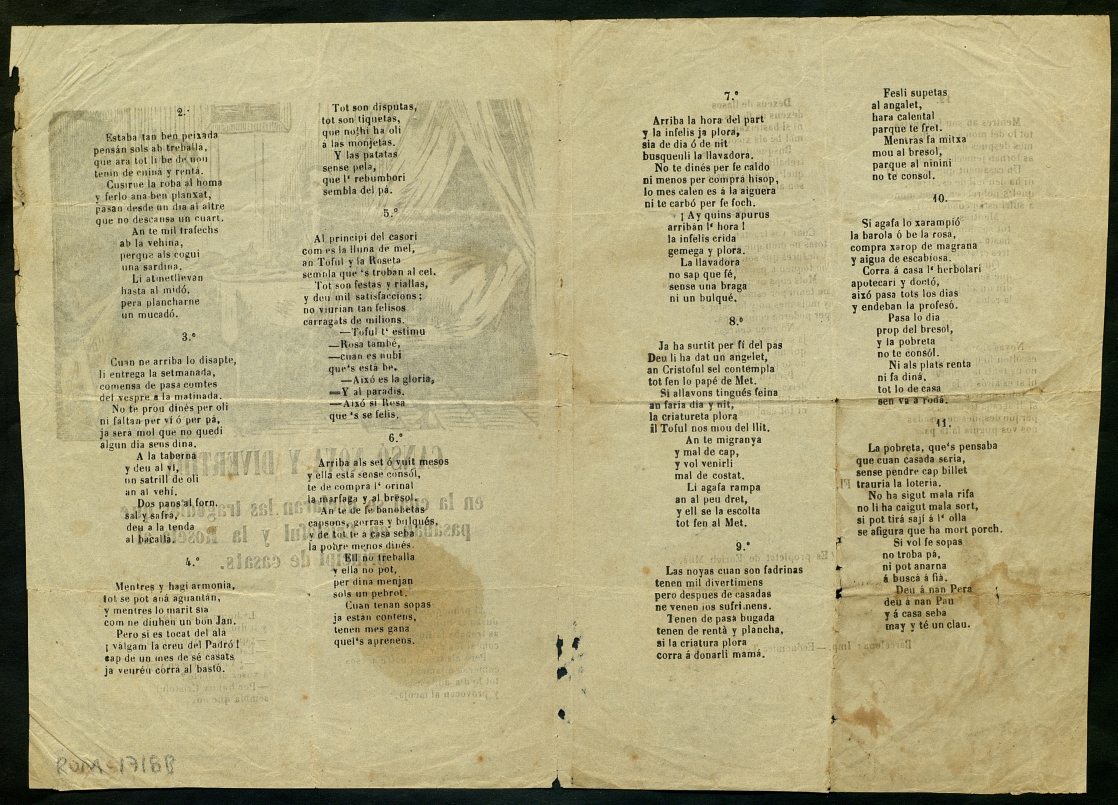 2.ª
Estaba tan ben peixada
pensán sols ab treballa,
que ara tot li be de nou
tenin de cuiná y rentá.
Cusirne la roba al home
y ferlo ana ben planxat,
pasan desde un dia al altre
que no descansa un cuart.
An te mil trafechs
ab la vehina,
perque als cogui
una sardina,
Li atmetllevan
hasta al midó,
pera plancharne
un mucadó.
3.ª
Cuan ne arriba lo disapte,
li entrega la setmanada,
comensa de pasá comtes
del vespre a la matinada.
No te prou dinés per oli
ni faltan per vi ó per pá,
ja sera mol que no quedi
algun dia sens dina.
A la taberna
y deu al vi,
un satrill de oli
an al vehí.
Dos pans al forn,
sal y safrá,
deu a la tenda
al bacallá.
4.ª
Mentres y hagi armonia,
tot se pot aná aguantán,
y mentres lo marit sia
com ne diuhen un bon Jan.
Pero si es tocat del ala
¡ válgam la creu del Padró !
cap de un mes de sé casats
ja veuréu corra al bastó.
Tot son disputas,
tot son tiquetas,
que no hi ha oli
a las monjetas.
Y las patatas
sense pela,
que l' rebumbori
sembla del pá.
5.ª
Al principi del casori
com es la lluna de mel,
an Toful y la Roseta
sembla que 's troban al cel.
Tot son festas y riallas,
y deu mil satisfaccions;
no viurian tan felisos
carragats de milions.
—Toful t' estimu
—Rosa també,
—cuan es nubi
que's está be.
—Aixó es la gloria,
—Y al paradis.
—Aixó si Rosa
que 's se felis.
6.ª
Arriba als set ó vuit mesos
y ella está sense consól,
te de compra l' orinal
la marfaga y al bresol.
An te de fe banobetas
capsons, gorras y bulqués,
y de tot te a casa seba
la pobre menos dinés.
Ell no treballa
y ella no pot,
per dina menjan
sols un pebrot.
Cuan tenan sopas
ja estan contens,
tenen mes gana
quel's aprenens.
7.ª
Arriba la hora del part
y la infelis ja plora,
sia de dia ó de nit
busquenli la llavadora.
No te dinés per fe caldo
ni menos per comprá hisop,
lo mes calen es á la aiguera
ni te carbó per fe foch.
¡ Ay quins apurus
arriban l' hora !
la infelis crida
gemega y plora.
La llavadora
no sap que fé,
sense una braga
ni un bulqué.
8.ª
Ja ha surtit per fí del pas
Deu li ha dat un angelet,
an Cristoful sel contempla
tot fen lo papé de Met.
Si allavons tingués feina
an faria dia y nit,
la criatureta plora
il Toful nos mou del llit.
An te migranya
y mal de cap,
y vol venirli
mal de costat.
Li agafa rampa
an al peu dret,
y ell se la escolta
tot fen al Met.
9.ª
Las noyas cuan son fadrinas
tenen mil divertimens
pero despues de casadas
ne venen los sufrimens.
Tenen de pasa bugada
tenen de rentà y plancha,
si la criatura plora
corra á donarli mamá.
Fesli supetas
al angalet,
hara calental
parque te fret.
Mentras fa mitxa
mou al bresol,
parque al ninini
no te consol.
10.
Si agafa lo xarampió
la barola ó be la rosa,
compra xarop de magrana
y aigua de escabiosa.
Corra á casa l' herbolari
apotecari y doctó,
aixó pasa tots los dias
y endeban la profesó.
Pasa lo dia
prop del bresol,
y la pobreta
no te consól.
Ni als plats renta
ni fa diná,
tot lo de casa
sen va a rodá.
11.
La pobreta, que's pensaba
que cuan casada seria,
sense pendre cap billet
trauria la loteria.
No ha sigut mala rifa
no li ha caigut mala sort,
si pot tirá sají á l' olla
se afigura que ha mort porch.
Si vol fe sopas
no troba pá,
ni pot anarna
á buscá á fiá.
Deu á nan Pera
deu á nan Pau
y á casa seba
may y té un clau.
ROM-1718B